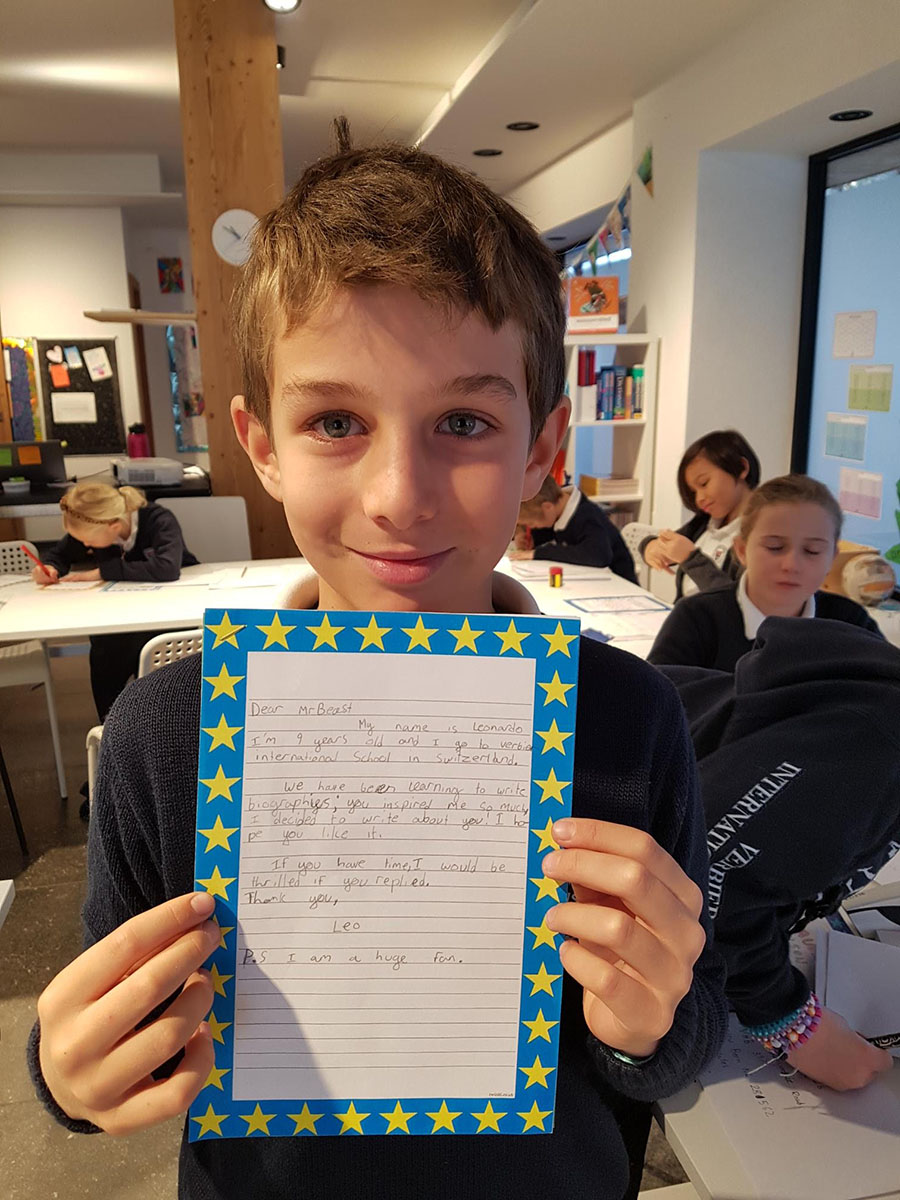 Dear MrBeast
My name is Leonardo
I'm 9 years old and I go to verbier
international School in Switzerland.
We have been learning to write
biographies, you inspired me so much,
I decided to write about you! I ho-
pe you like it.
If you have time, I would be
thrilled if you replied.
Thank you,
Leo
P.S I am a huge fan.
INTERNATI
VERBIE